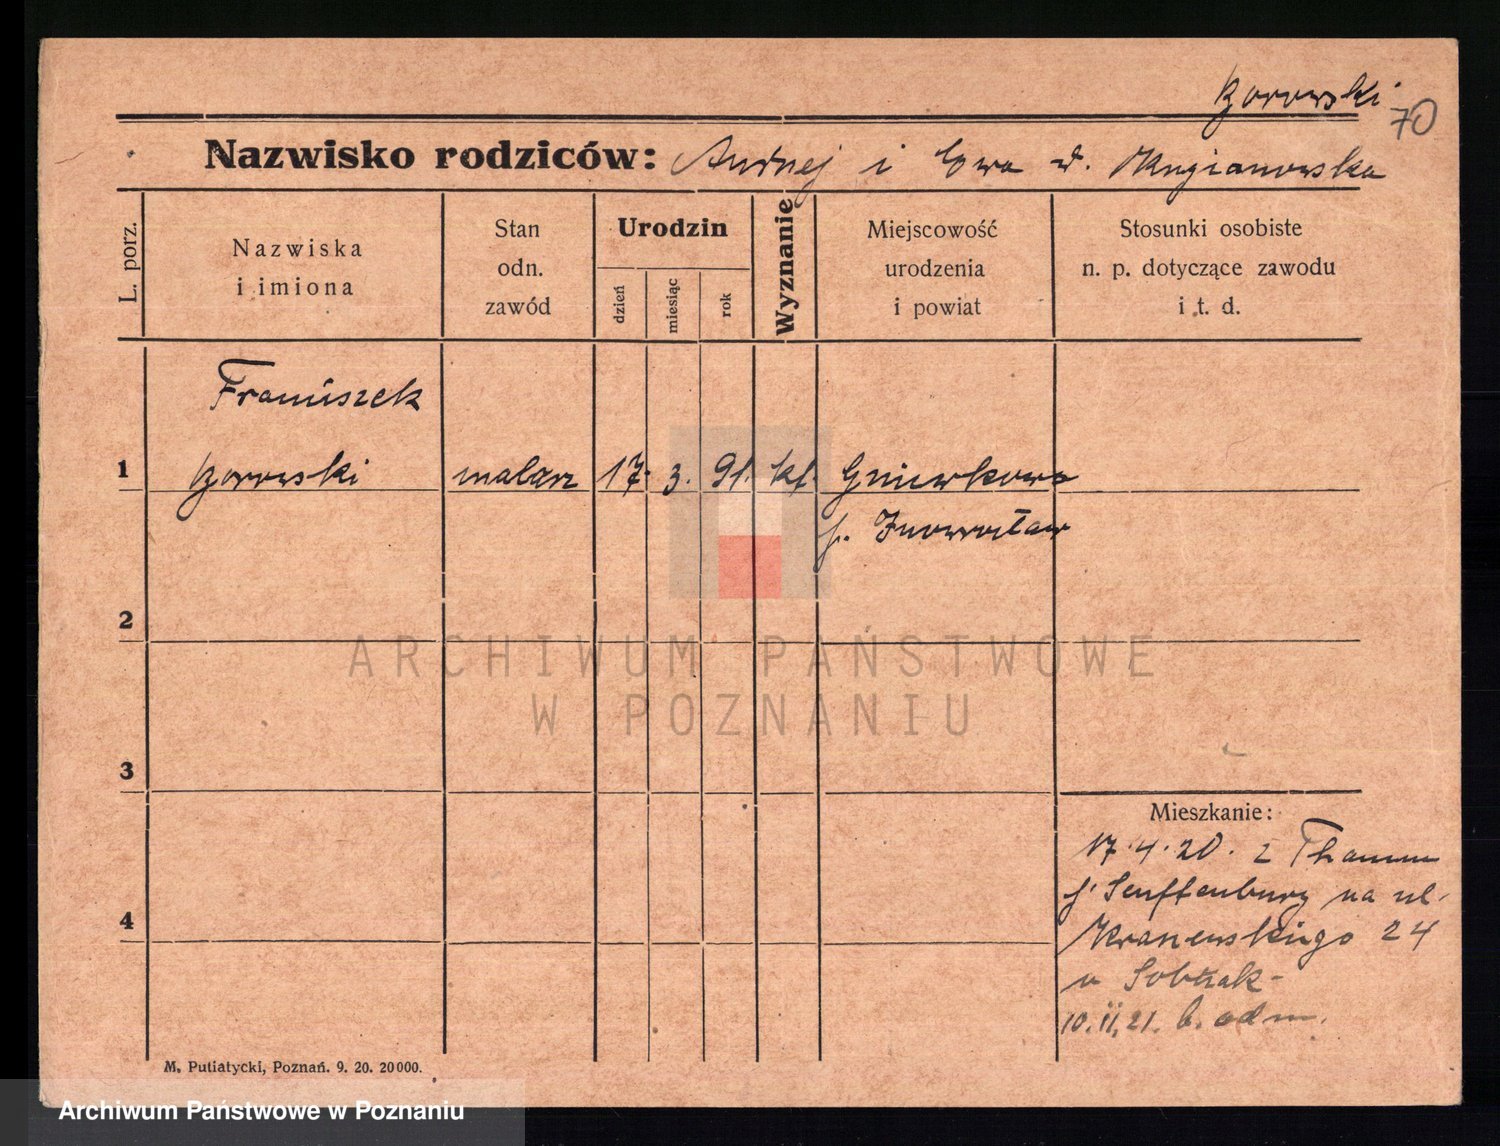 Borowski
70
Nazwisko rodziców: Andrzej i Ewa d.
L. porz.
Nazwiska i imiona
Stan odn. zawód
Urodzin
dzień
miesiąc
rok
Wyznanie
Miejscowość urodzenia i powiat
Stosunki osobiste n. p. dotyczące zawodu i t. d.
Franciszek
1 Borowski malarz 17. 3. 91. kt. Gniewkowo
p. Inowrocław
2
ARCHIWUM PAŃSTWOWE
W POZNANIU
3
Mieszkanie:
17.4.20. z Thamm
p. Senftenburg na ul.
Kraszewskiego 24
u Sobczak-
10.II.21. b. adm.
4
M. Putiatycki, Poznań. 9. 20. 20000.
Archiwum Państwowe w Poznaniu